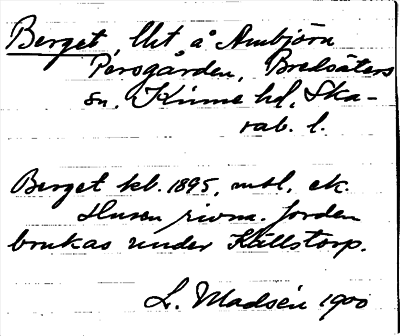 Berget, lht å Arnbjörn
Persgården, Bredsäters
sn. Kinne hd, Ska-
rab. l.
Berget kb. 1895, mtl. ek.
Husen rivna. Jorden
brukas under Källstorp.
L. Madsén 1900